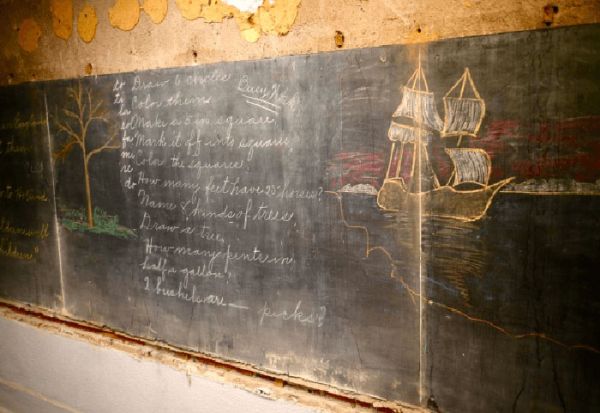 do Draw 6 circles Busy W
Color them
Make a 5 in square
Mark it off into squares
mi Color the squares
re How many feet have 25 horses?
do Name 4 kinds of trees
Draw a tree
How many pints in
half a gallon?
2 bushels are — pecks?
them
children"